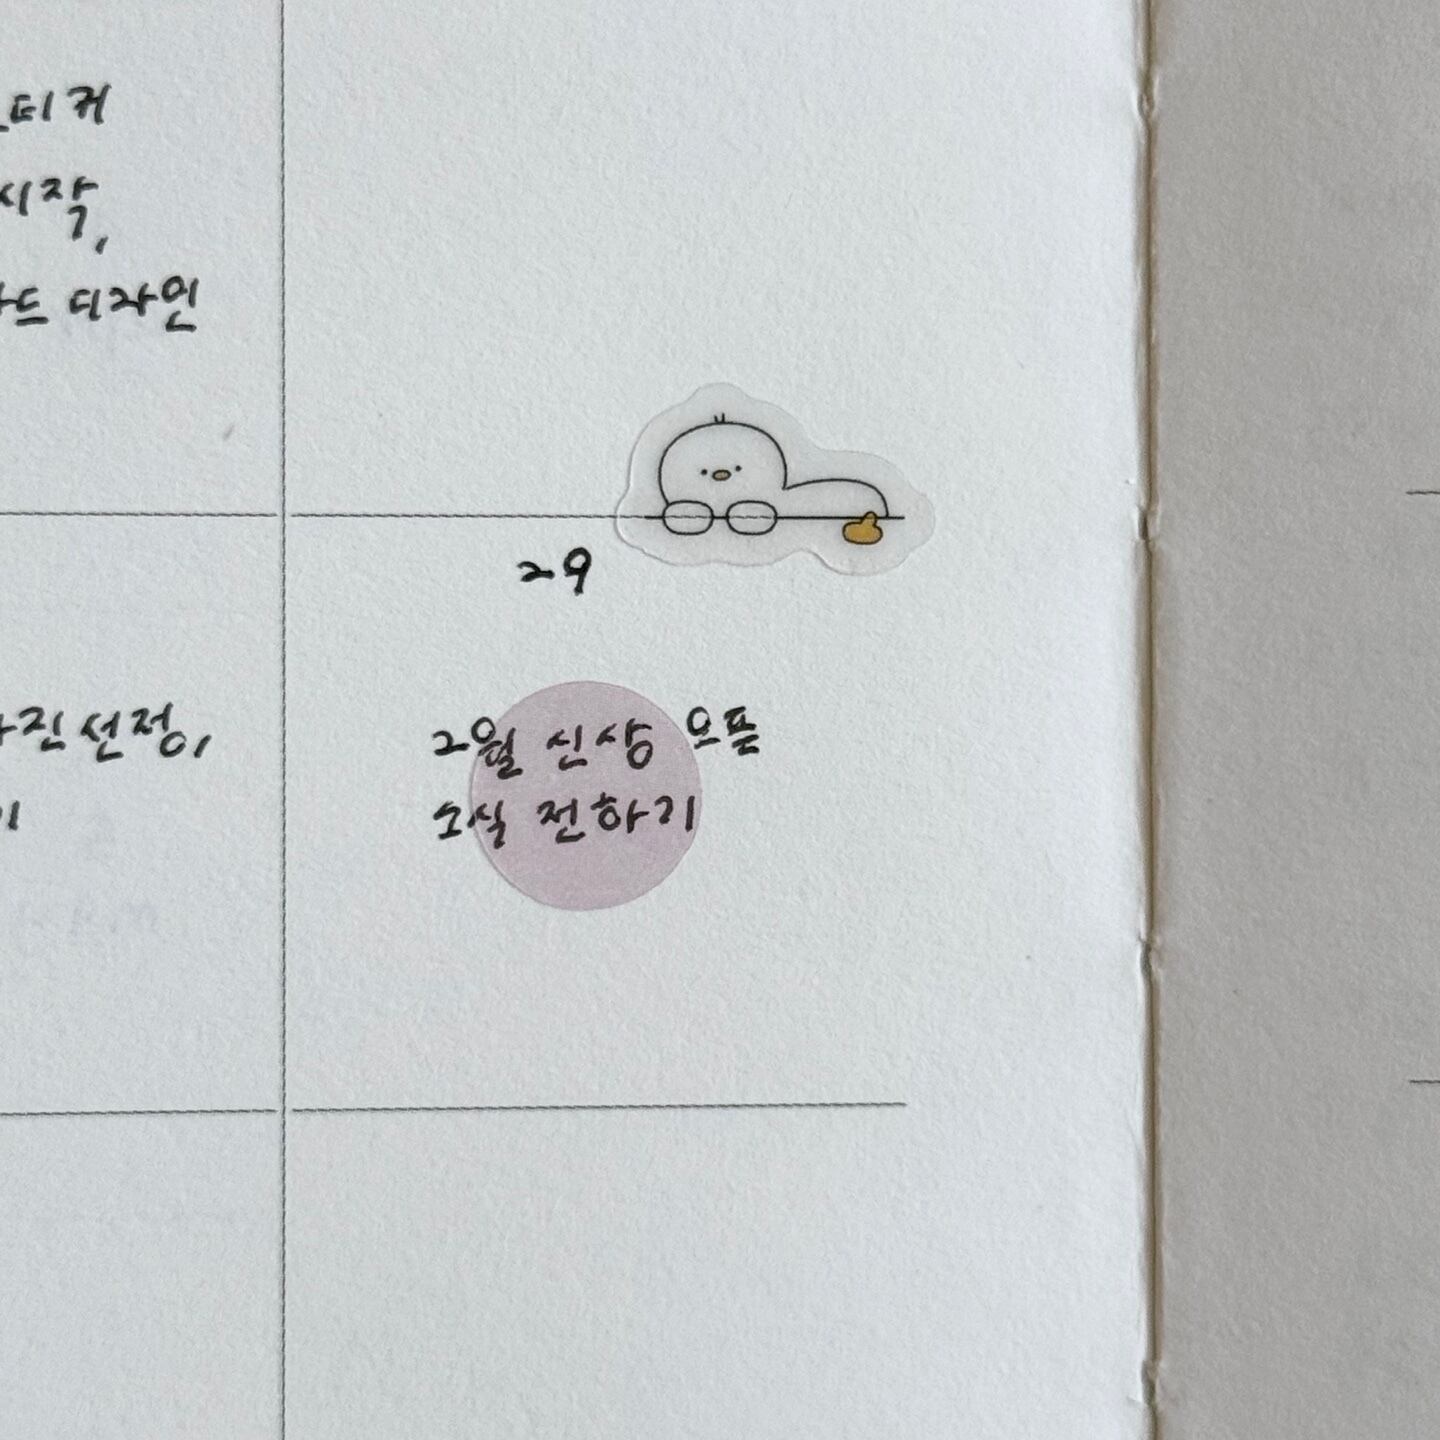 티커
시작,
드 디자인
29
진 선정,
2월 신상 오픈
소식 전하기